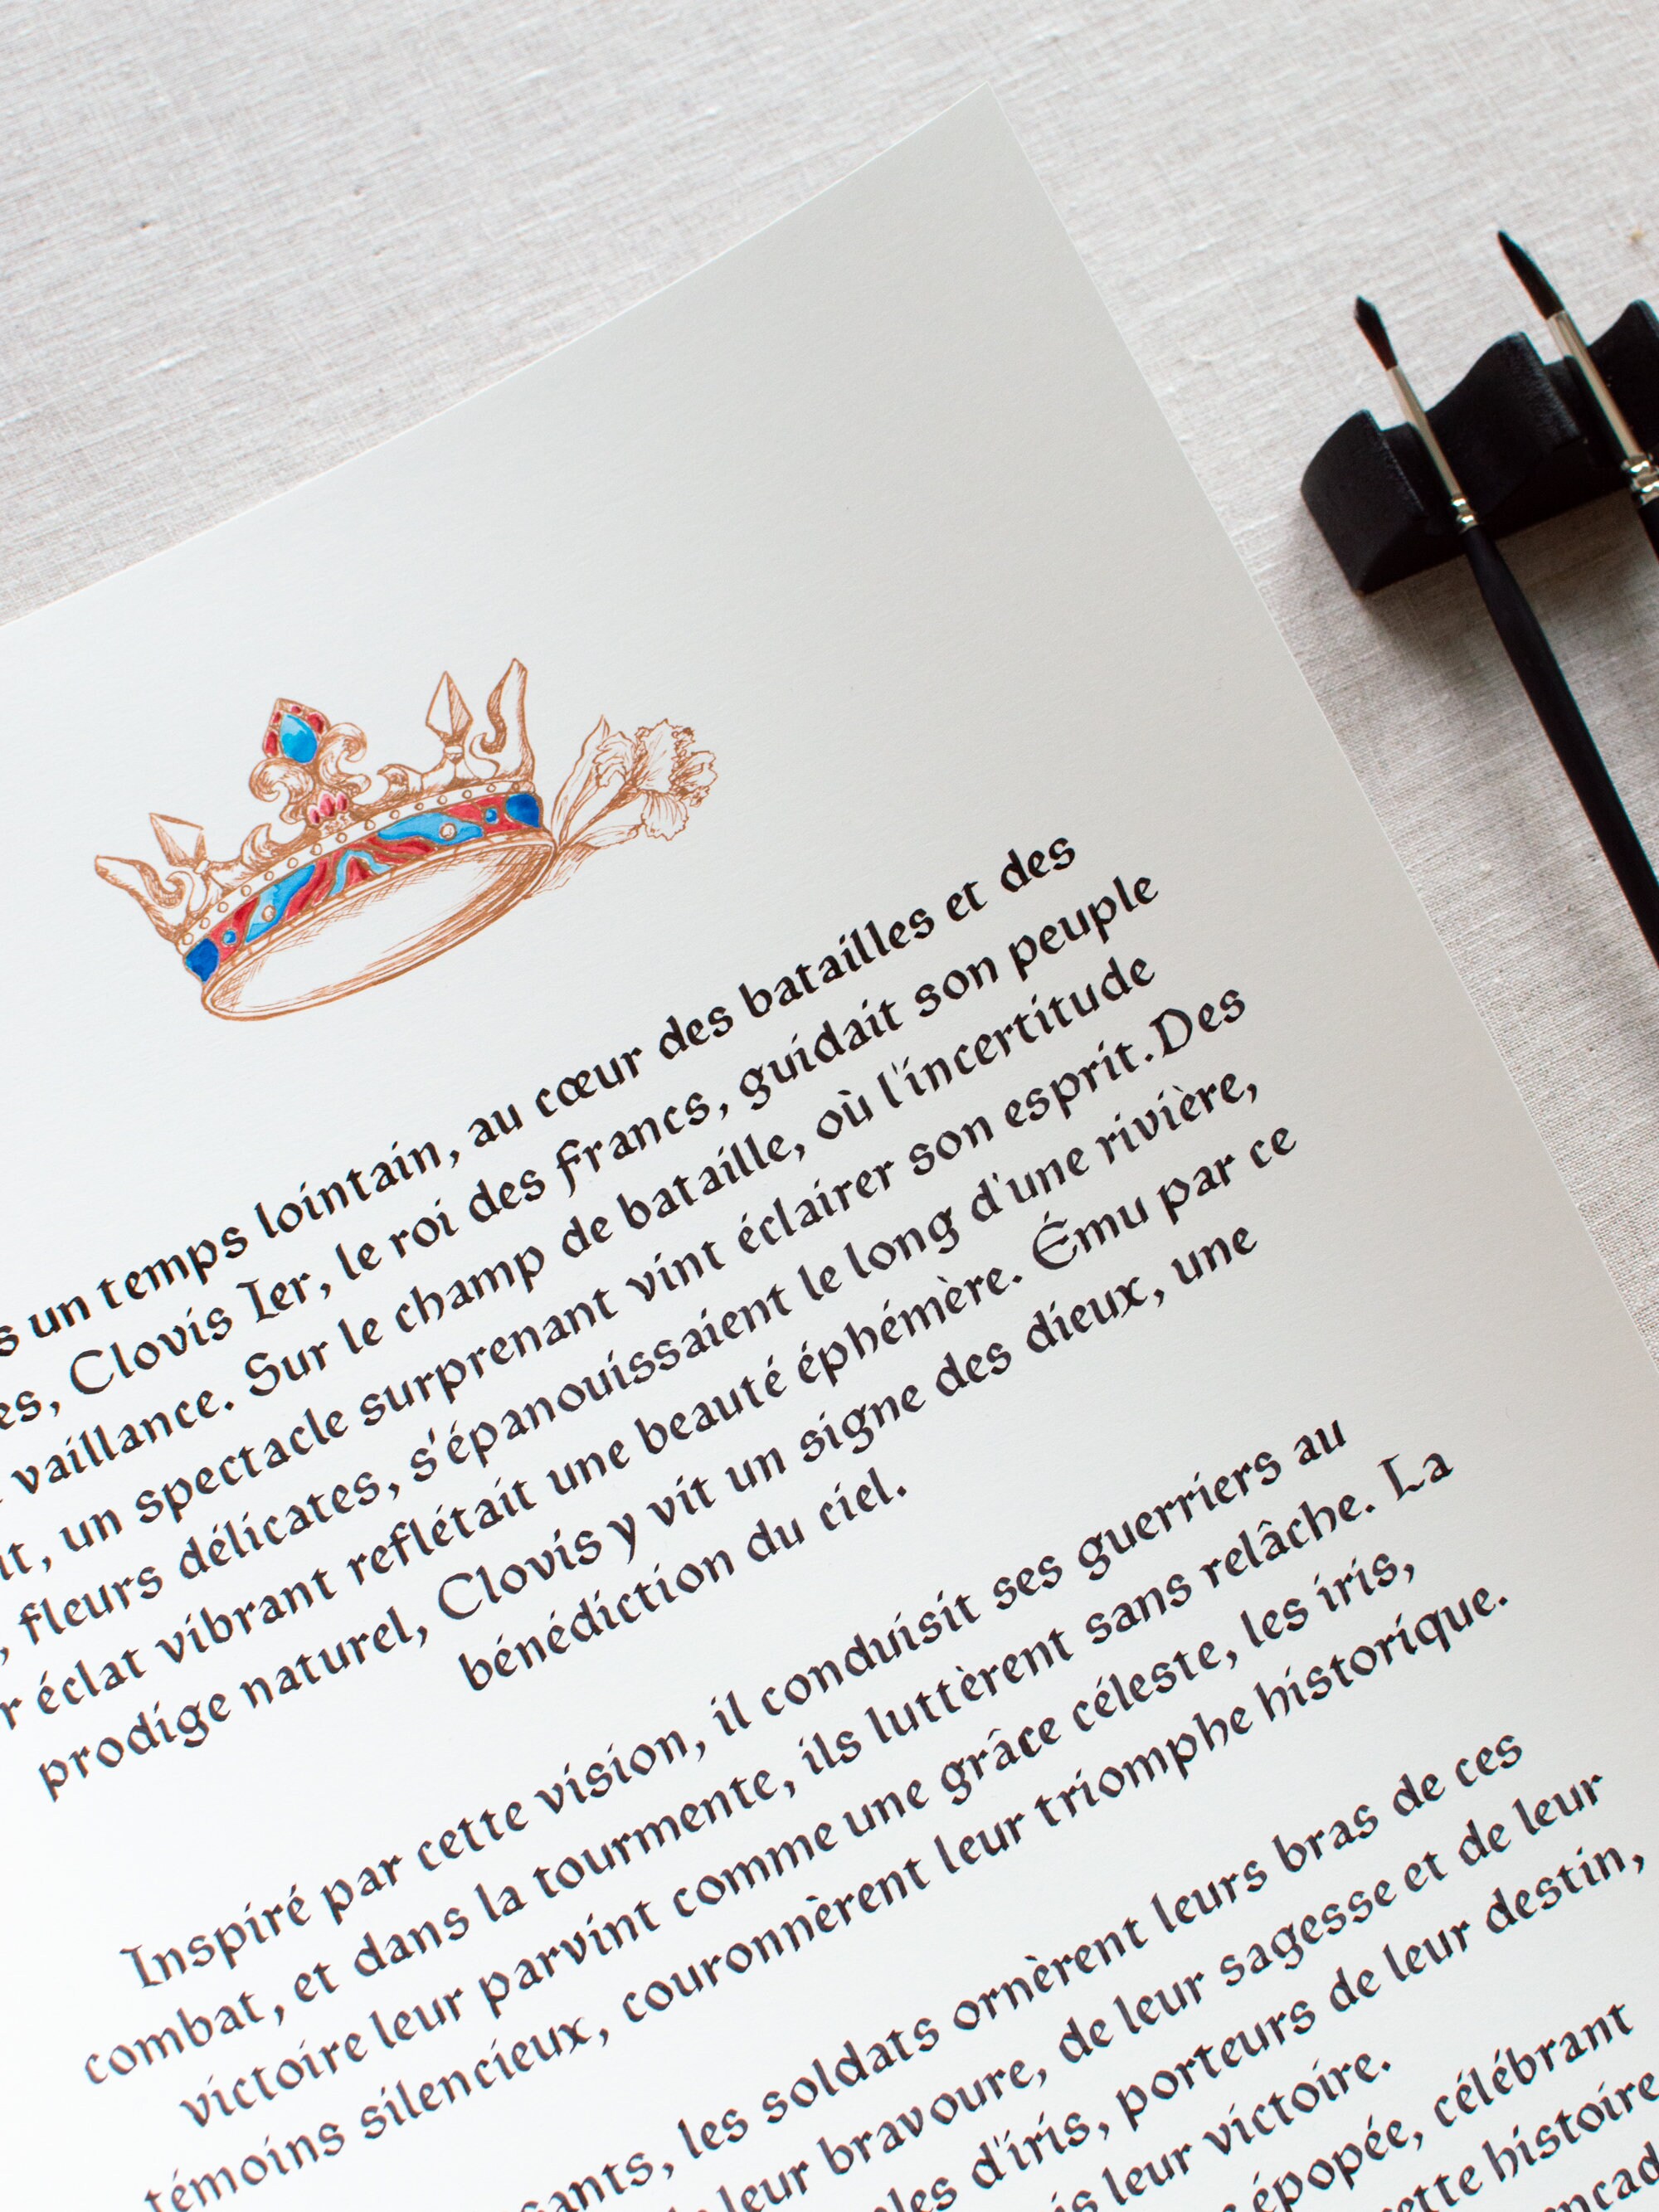 un temps lointain, au cœur des batailles et des
Clovis Ier, le roi des francs, guidait son peuple
vaillance. Sur le champ de bataille, où l'incertitude
un spectacle surprenant vint éclairer son esprit. Des
fleurs délicates, s'épanouissaient le long d'une rivière,
éclat vibrant reflétait une beauté éphémère. Ému par ce
prodige naturel, Clovis y vit un signe des dieux, une
bénédiction du ciel.
Inspiré par cette vision, il conduisit ses guerriers au
combat, et dans la tourmente, ils luttèrent sans relâche. La
victoire leur parvint comme une grâce céleste, les iris,
témoins silencieux, couronnèrent leur triomphe historique.
les soldats ornèrent leurs bras de ces
leur bravoure, de leur sagesse et de leur
d'iris, porteurs de leur destin,
leur victoire.
épopée, célébrant
histoire